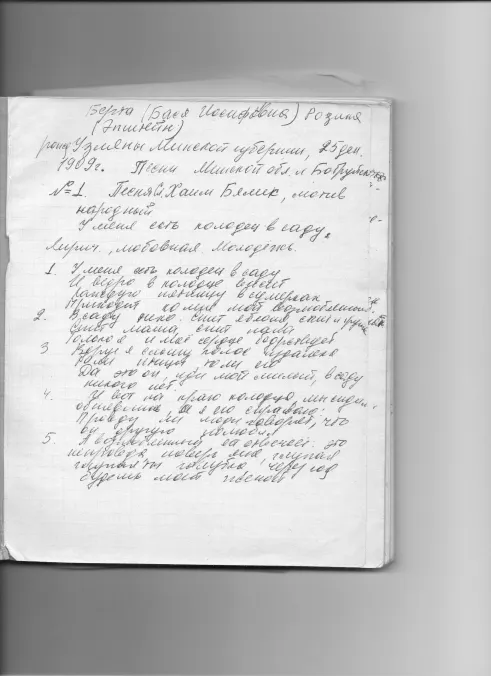 Берта (Бася Иосифовна) Розина
(Эпштейн)
Узляны Минской губернии, 25 дек.
1909г. Песни Минской обл. и Бобруйск
№1 Песня Хаим Бялик, мотив
народный
У меня есть колодец в саду.
Лирич., любовная. Молодежь.
1. У меня есть колодец в саду
И ведро в колодце висит
Каждую пятницу в сумерках
Приходит ко мне мой возлюбленный.
2. В саду тихо. спит яблоня спит и груша
Спит мама, спит папа
Только я и моё сердце бодрствует
3 Вдруг я слышу голос
Да это он, иди мой милый, в саду
никого нет.
4. И вот на краю колодца, мы сидим,
обнявшись и я его спрашиваю:
Правду ли люди говорят, что
ты другую
5. А возлюбленный ей отвечает: это
неправда, поверь мне, глупая
глупая ты голубка, через год
будешь моей